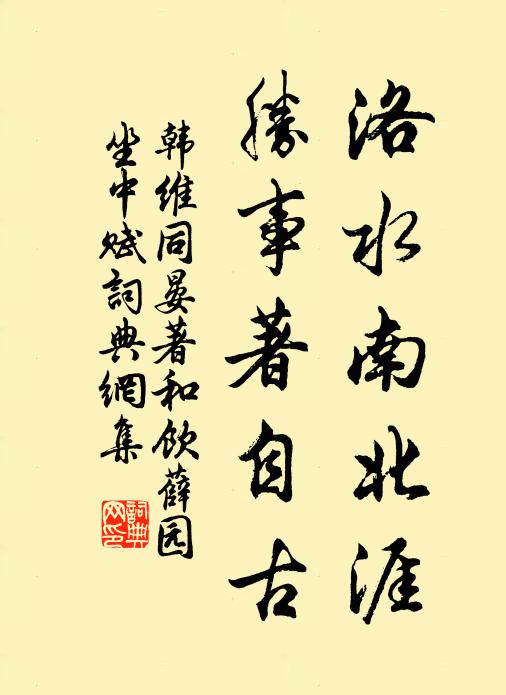 洛水南北涯
勝事著自古
韩维同晏著和饮薛园
坐中赋詞典網集
詞典网印